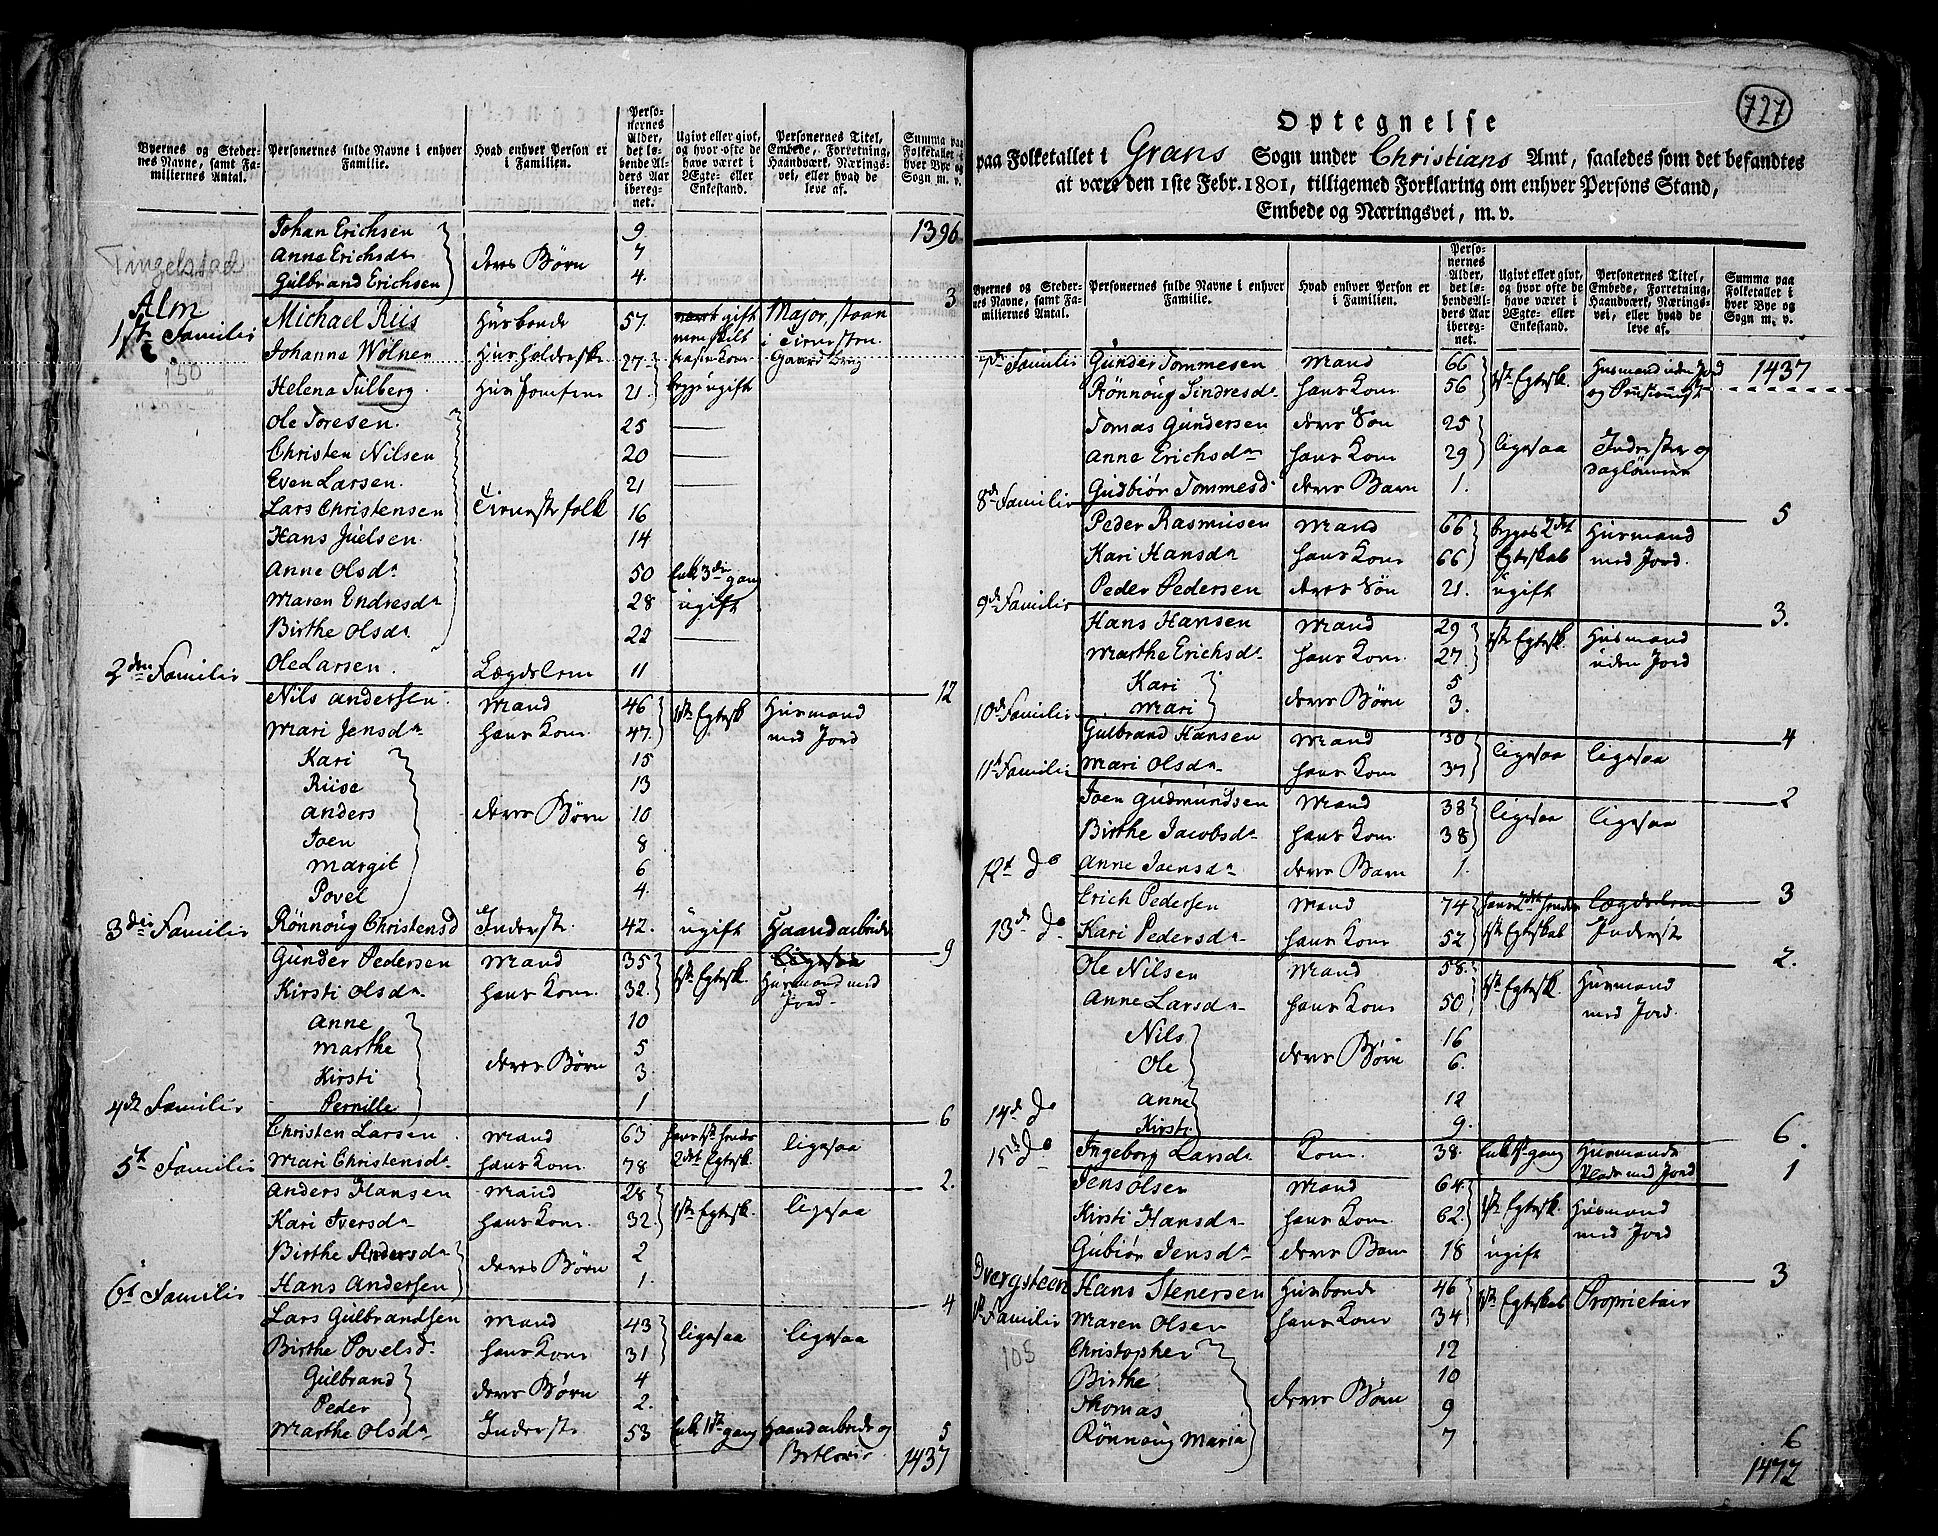 Byernes og Steder-
nes Navne, samt Fa-
miliernes Antal.
Personernes fulde Navne i enhver
Familie.
Hvad enhver Person er
i Familien.
Perso-
nernes
Alder,
det lø-
bende Al-
ders Aar
ibereg-
net.
Ugivt eller givt,
og hvor ofte de
have været i
Ægte- eller
Enkestand.
Personernes Titel,
Embede, Forretning,
Haandværk, Nærings-
vei, eller hvad de
leve af.
Summa paa
Folketallet i
hver Bye og
Sogn m. v.
Johan Erichsen 9. 1396
Tingelstad Anne Erichsdr deres Børn 7
Gulbrand Erichsen 4. 3
Alm
1ste Familie Michael Riis Husbonde 57. ugift Major, staar
Johanne Wølner Husholderske 27
150
Helena Tulberg Husjomfrue 21 begge ugift
Ole Toresen. 25
Christen Nilsen 20
Even Larsen. 21
Lars Christensen Tienestefolk 16
Hans Juelsen 14
Anne Olsdr 50 Enke 3die gang
Maren Endresdr 28 ugift
Birthe Olsdr 22
Ole Larsen Lægdslem 11 12
2den Familie
Nils Andersen Mand 46 1ste Egtesk Husmand
Mari Jensdr hans Kone 47 med Jord
Kari 15
Riise 13
Anders deres Børn 10
Joen 8
Margit 6
Povel 4.
Rønnoug Christensd Inderst. 42. ugift Haandarbeide 9
3die Familie
Gunder Pedersen Mand 35 1ste Egtesk. Husmand med
Kirsti Olsdr hans Kone 32. Jord
Anne 10
Marthe deres Børn 5
Kirsti 3
Pernille 1 6
4de Familie
Christen Larsen Mand 63 ligesaa
Mari Christensdr hans Kone 78 2det Egtesk. 2.
5te Familie
Anders Hansen Mand 28 1ste Egtesk. ligesaa
Kari Iversdr hans Kone 32.
Birthe Andersdr deres Børn 2
Hans Andersen 1. 4
6te Familie
Lars Gulbrandsen Mand 43 ligesaa ligesaa
Birthe Povelsdr hans Kone 31
Gulbrand deres Børn 4
Peder 2.
Marthe Olsdr Inderste 53 Enke 1ste gang Haandarbeide og 5
1437
727
Optegnelse
paa Folketallet i Grans Sogn under Christians Amt, saaledes som det befandtes
at være den 1ste Febr. 1801, tilligemed Forklaring om enhver Persons Stand,
Embede og Næringsvei, m. v.
Byernes og Steder-
nes Navne, samt Fa-
miliernes Antal.
Personernes fulde Navne i enhver
Familie.
Hvad enhver Person er
i Familien.
Perso-
nernes
Alder,
det lø-
bende Al-
ders Aar
ibereg-
net.
Ugivt eller givt,
og hvor ofte de
have været i
Ægte- eller
Enkestand.
Personernes Titel,
Embede, Forretning,
Haandværk, Nærings-
vei, eller hvad de
leve af.
Summa paa
Folketallet i
hver Bye og
Sogn m. v.
7de Familie Gunder Tommesen Mand 66 1ste Egtesk. Husmand uden Jord 1437
Rønnoug Sindresdr hans Kone 56
Tomas Gundersen deres Søn 25 ligesaa Inderster og
Anne Erichsdr hans Kone 29 Daglønner
Gudbiør Tommesd deres Barn 1. 5
8de Familie
Peder Rasmusen Mand 66 begges 2det Husmand
Kari Hansdr hans Kone 66 Egteskab med Jord.
Peder Pedersen deres Søn 21. ugift 3.
9de Familie
Hans Hansen Mand 29 1ste Egtesk. Husmand
Marthe Erichsdr hans Kone 27. uden Jord
Kari deres Børn 5
Mari 3. 4
10de Familie
Gulbrand Hansen Mand 30 ligesaa ligesaa
Mari Olsdr hans Kone 37 2
11te Familie
Joen Gudmundsen Mand 38 ligesaa ligesaa
Birthe Jacobsdr hans Kone 38
Anne Joensdr deres Barn 1. 3
12te do
Erich Pedersen Mand 74 Lægdslem
Kari Pedersdr hans Kone 52 1ste Egteskab Inderste 2.
13de do
Ole Nilsen Mand 58. 1ste Egtesk. Husmand
Anne Larsdr hans Kone 50 med Jord.
Nils deres Børn 16
Ole 6.
Anne 12
Kirsti 9. 6.
14de do
Ingeborg Larsdr Kone 38. Enke 1ste gang Husmands
Plads med Jord 1
15de do
Jens Olsen Mand 64. 1ste Egtesk. Husmand
Kirsti Hansdr hans Kone 62. med Jord
Gubiør Jensdr deres Barn 18 ugift 3
Dvergsteen Hans Stenersen Husbonde 46 1ste Egteskab Proprietair
1ste Familie Maren Olsen hans Kone 34
105 Christopher 12
Birthe deres Børn 10
Thomas 9
Rønnoug Maria 7 6
1472